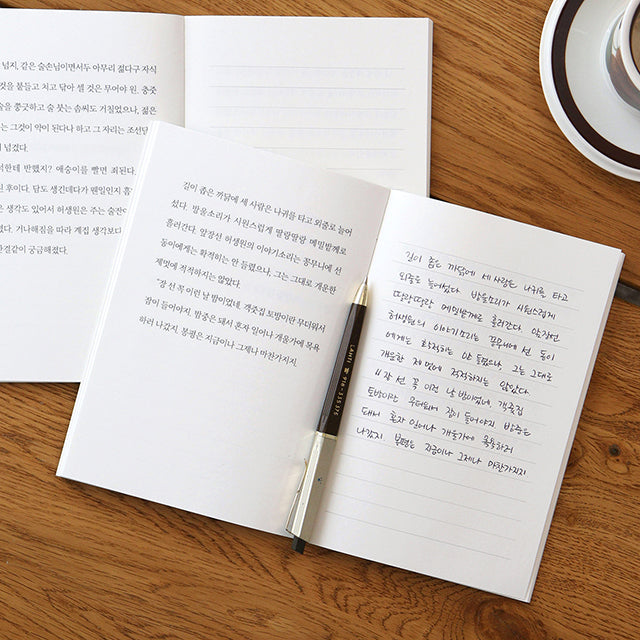 넘지, 같은 술손님이면서두 아무리 젊다구 자식
것을 붙들고 치고 닦아 셀 것은 무어야 원. 충줏
술을 쫓굿하고 술 붓는 솜씨도 거칠었으나, 젊은
는 그것이 약이 된다나 하고 그 자리는 조선달
넘겼다.
한테 반했지? 애숭이를 빨면 죄된다.
후이다. 담도 생긴데다가 웬일인지 흠
생각도 있어서 허생원은 주는 술잔
거나해짐을 따라 계집 생각보다
한결같이 궁금해졌다.
길이 좁은 까닭에 세 사람은 나귀를 타고 외줄로 늘어
섰다. 방울소리가 시원스럽게 딸랑딸랑 메밀밭께로
흘러간다. 앞장선 허생원의 이야기소리는 꽁무니에 선
동이에게는 확적하는 안 들렸으나, 그는 그대로 개운한
제멋에 적적하지는 않았다.
"장 선 꼭 이런 날 밤이었네. 객줏집 토방이란 무더워서
잠이 들어야지. 밤중은 돼서 혼자 일어나 개울가에 목욕
하러 나갔지. 봉평은 지금이나 그제나 마찬가지지.
LAMY 숲 P10-335375
길이 좁은 까닭에 세 사람은 나귀를 타고
외줄로 늘어섰다. 방울소리가 시원스럽게
딸랑딸랑 메밀밭께로 흘러간다. 앞장선
허생원의 이야기소리는 꽁무니에 선 동이
에게는 확적하는 안 들렸으나, 그는 그대로
개운한 제멋에 적적하지는 않았다.
"장 선 꼭 이런 날 밤이었네. 객줏집
토방이란 무더워서 잠이 들어야지. 밤중은
돼서 혼자 일어나 개울가에 목욕하러
나갔지. 봉평은 지금이나 그제나 마찬가지지